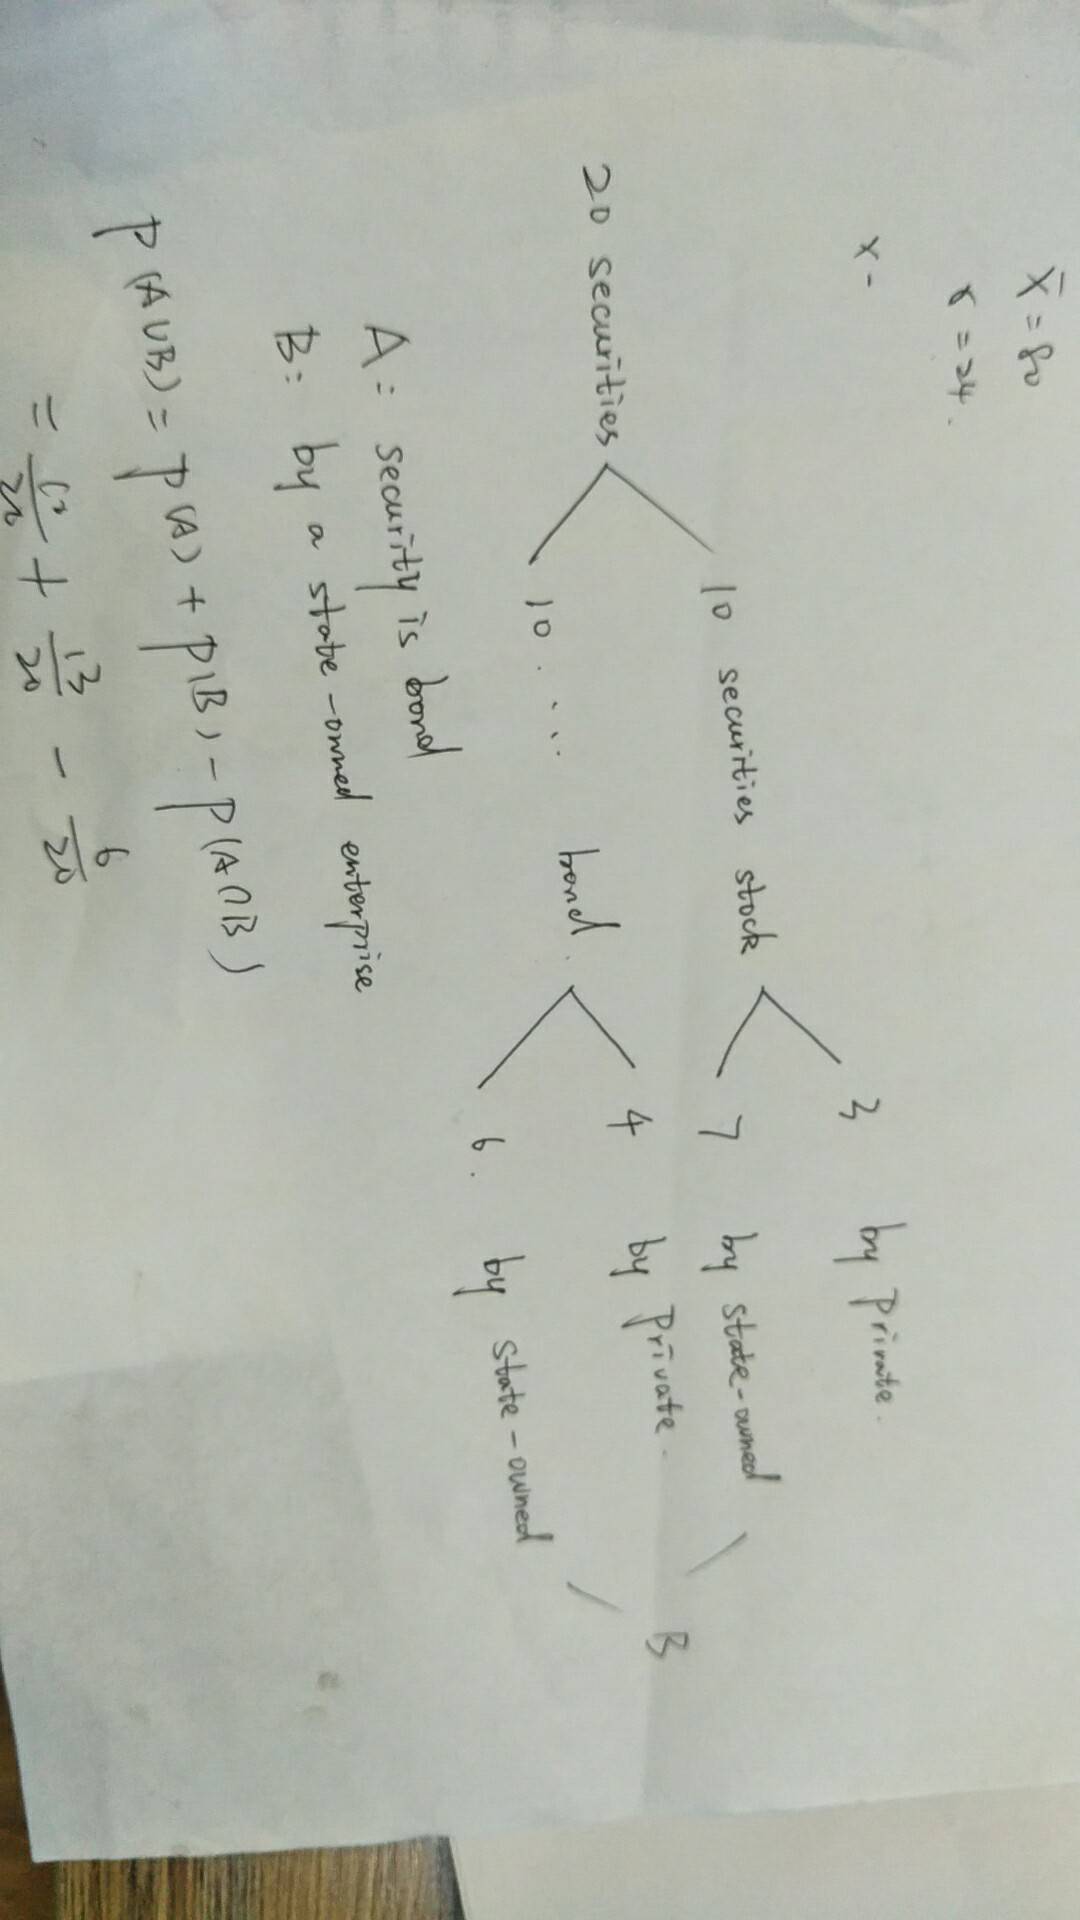 X̄ = 80
x = 24.
x -
3 by Private.
10 securities stock
7 by state-owned
B
20 securities
4 by Private.
10 . . . . bond.
6. by state-owned
A: security is bond
B: by a state-owned enterprise
P(A∪B) = P(A) + P(B) - P(A∩B)
= 10/20 + 13/20 - 6/20